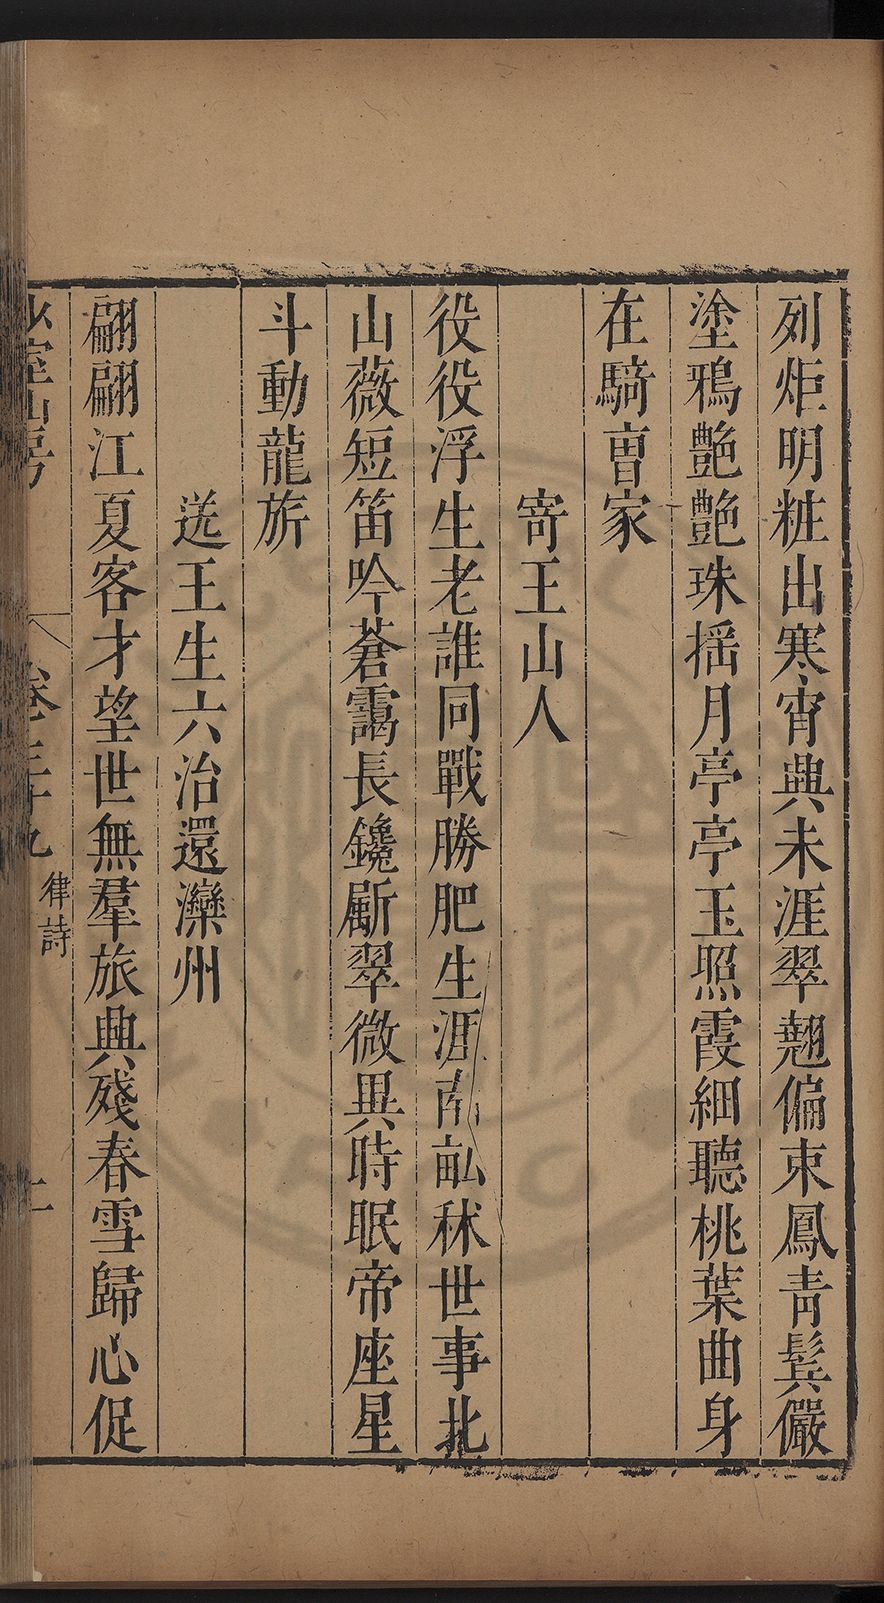 列炬明粧出寒宵興未涯翠翹偏束鳳青鬂儼
塗鴉艶艶珠揺月亭亭玉照霞細聽桃葉曲身
在騎曺家
寄王山人
役役浮生老誰同戰勝肥生涯南畝秫世事北
山薇短笛吟蒼靄長鑱斸翠微異時眠帝座星
斗動龍旂
送王生六治還灤州
翩翩江夏客才望世無羣旅興殘春雪歸心促
少室山房
卷三十九
律詩
二